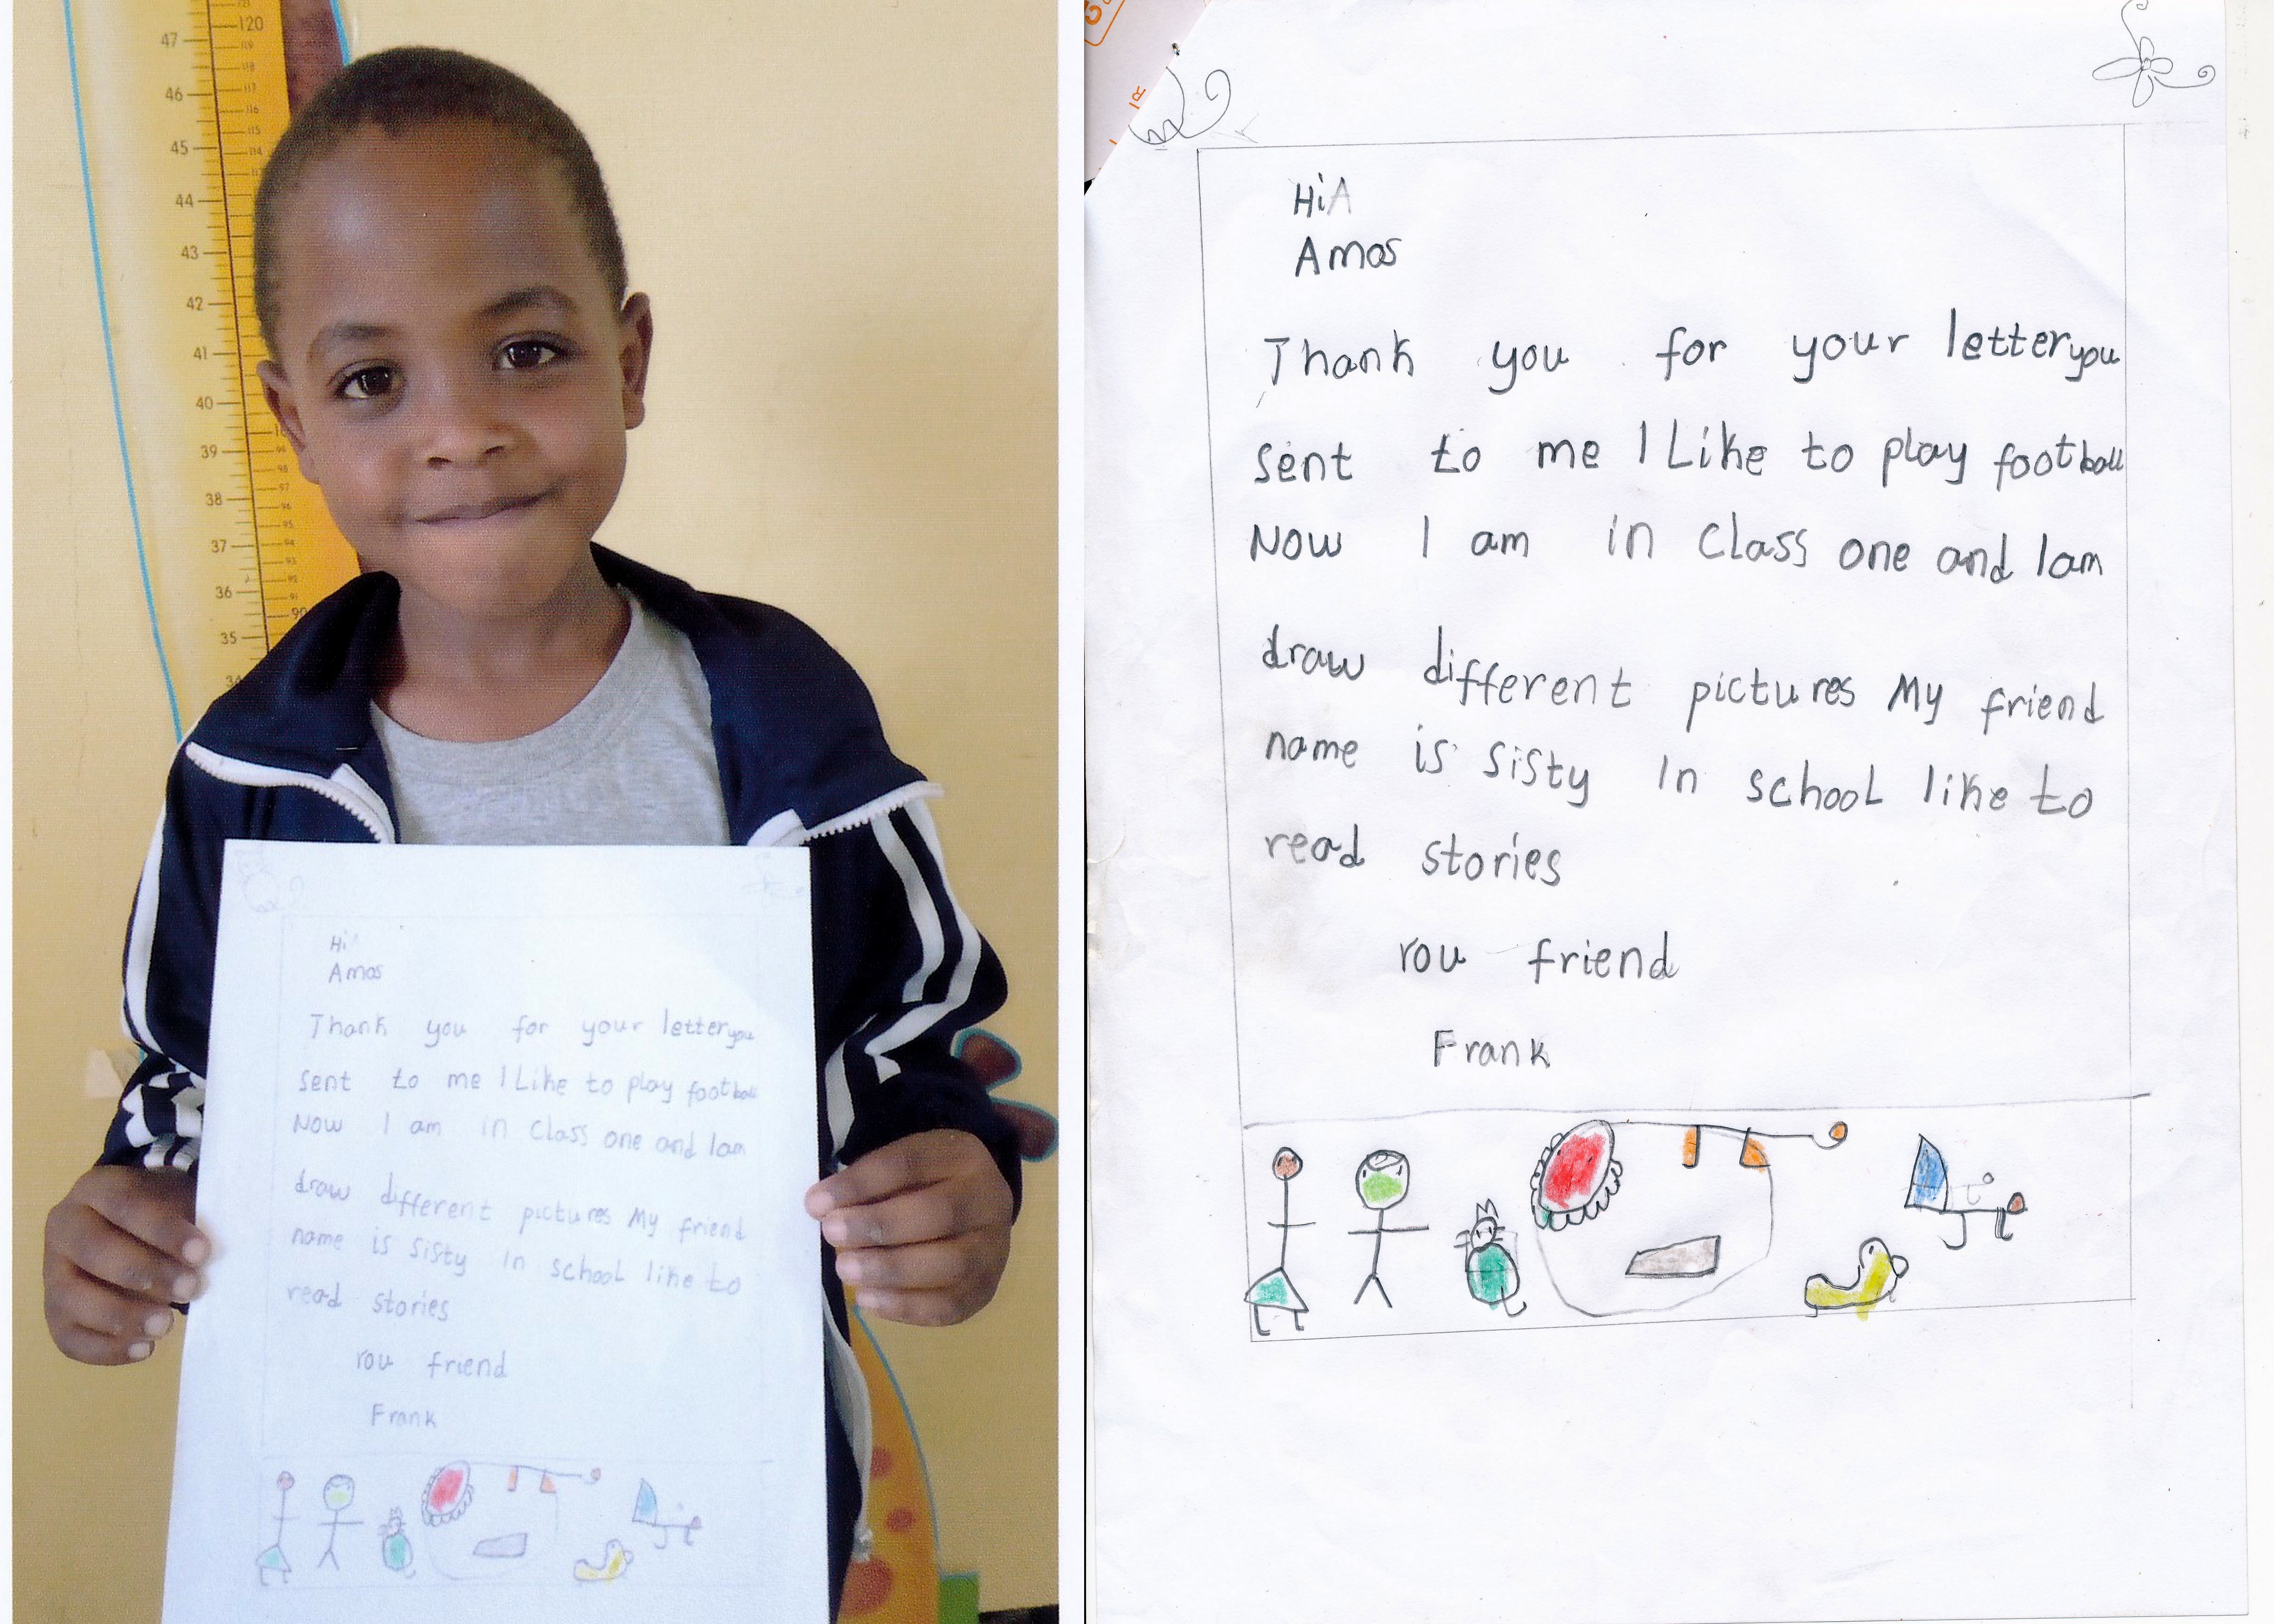 120
47
119
118
117
46
116
115
45
114
44
43
42
41
40
39
38
37
36
35
90
Hi
Amos
Thank you for your letter you
sent to me I Like to play football
Now I am in class one and Iam
draw different pictures My friend
name is Sisty In school like to
read stories
rou friend
Frank
HiA
Amos
Thank you for your letter you
sent to me I Like to play football
Now I am in class one and Iam
draw different pictures My friend
name is Sisty In school like to
read stories
rou friend
Frank